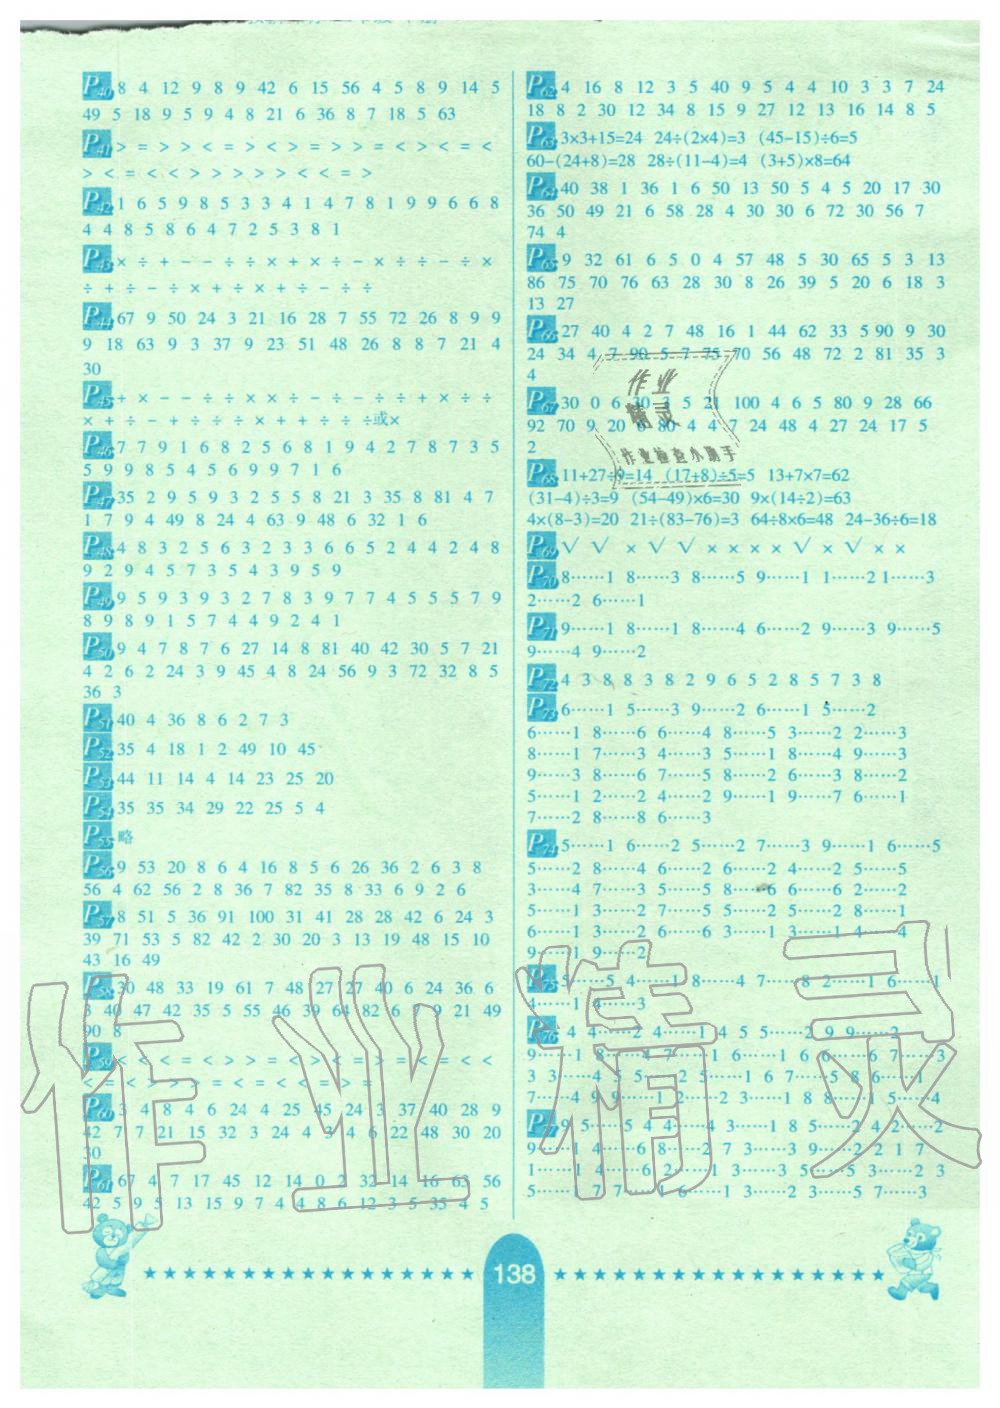 P40 8 4 12 9 8 9 42 6 15 56 4 5 8 9 14 5
49 5 18 9 5 9 4 8 21 6 36 8 7 18 5 63
P41 > = > > < = > < > = > > = < > < = <
> < = < < > > > > > < < = >
P42 1 6 5 9 8 5 3 3 4 1 4 7 8 1 9 9 6 6 8
4 4 8 5 8 6 4 7 2 5 3 8 1
P43 × ÷ + − − ÷ ÷ × + × ÷ − × ÷ ÷ − ÷ ×
÷ + ÷ − ÷ × + ÷ × + ÷ − ÷ ÷
P44 67 9 50 24 3 21 16 28 7 55 72 26 8 9 9
9 18 63 9 3 37 9 23 51 48 26 8 8 7 21 4
30
P45 + × − ÷ ÷ × × ÷ − ÷ − ÷ ÷ + × ÷ ÷
× + ÷ − + ÷ ÷ ÷ × + + ÷ ÷ ÷或×
P46 7 7 9 1 6 8 2 5 6 8 1 9 4 2 7 8 7 3 5
5 9 9 8 5 4 5 6 9 9 7 1 6
P47 35 2 9 5 9 3 2 5 5 8 21 3 35 8 81 4 7
1 7 9 4 49 8 24 4 63 9 48 6 32 1 6
P48 4 8 3 2 5 6 3 2 3 3 6 6 5 2 4 4 2 4 8
9 2 9 4 5 7 3 5 4 3 9 5 9
P49 9 5 9 3 9 3 2 7 8 3 9 7 7 4 5 5 5 7 9
8 9 8 9 1 5 7 4 4 9 2 4 1
P50 9 4 7 8 7 6 27 14 8 81 40 42 30 5 7 21
4 2 6 2 24 3 9 45 4 8 24 56 9 3 72 32 8 5
36 3
P51 40 4 36 8 6 2 7 3
P52 35 4 18 1 2 49 10 45
P53 44 11 14 4 14 23 25 20
P54 35 35 34 29 22 25 5 4
P55 略
P56 9 53 20 8 6 4 16 8 5 6 26 36 2 6 3 8
56 4 62 56 2 8 36 7 82 35 8 33 6 9 2 6
P57 8 51 5 36 91 100 31 41 28 28 42 6 24 3
39 71 53 5 82 42 2 30 20 3 13 19 48 15 10
43 16 49
P58 30 48 33 19 61 7 48 27 27 40 6 24 36 6
3 40 47 42 35 5 55 46 39 64 82 6 7 9 21 49
90 8
P59 < < < = < > > < = > < > = < = < <
< = < > > > = < = < < = > =
P60 3 4 8 4 6 24 4 25 45 24 3 37 40 28 9
42 7 7 21 15 32 3 24 4 3 4 6 22 48 30 20
30
P61 67 4 7 17 45 12 14 0 2 32 14 16 63 56
42 5 9 5 13 15 9 7 4 4 8 6 12 3 5 35 4 5
P62 4 16 8 12 3 5 40 9 5 4 4 10 3 3 7 24
18 8 2 30 12 34 8 15 9 27 12 13 16 14 8 5
P63 3×3+15=24 24÷(2×4)=3 (45−15)÷6=5
60−(24+8)=28 28÷(11−4)=4 (3+5)×8=64
P64 40 38 1 36 1 6 50 13 50 5 4 5 20 17 30
36 50 49 21 6 58 28 4 30 30 6 72 30 56 7
74 4
P65 9 32 61 6 5 0 4 57 48 5 30 65 5 3 13
86 75 70 76 63 28 30 8 26 39 5 20 6 18 3
13 27
P66 27 40 4 2 7 48 16 1 44 62 33 5 90 9 30
24 34 4 7 90 5 7 75 70 56 48 72 2 81 35 3
4
P67 30 0 6 30 3 5 21 100 4 6 5 80 9 28 66
92 70 9 20 6 80 4 4 7 24 48 4 27 24 17 5
2
P68 11+27÷9=14 (17+8)÷5=5 13+7×7=62
(31−4)÷3=9 (54−49)×6=30 9×(14÷2)=63
4×(8−3)=20 21÷(83−76)=3 64÷8×6=48 24−36÷6=18
P69 √ √ × √ √ × × × × √ × √ × ×
P70 8……1 8……3 8……5 9……1 1……2 1……3
2……2 6……1
P71 9……1 8……1 8……4 6……2 9……3 9……5
9……4 9……2
P72 4 3 8 8 3 8 2 9 6 5 2 8 5 7 3 8
P73 6……1 5……3 9……2 6……1 5……2
6……1 8……6 6……4 8……5 3……2 2……3
8……1 7……3 4……3 5……1 8……4 9……3
9……3 8……6 7……5 8……2 6……3 8……2
5……1 2……2 4……2 9……1 9……7 6……1
7……2 8……8 6……3
P74 5……1 6……2 5……2 7……3 9……1 6……5
5……2 8……4 6……2 6……2 4……2 5……5
3……4 7……3 5……5 8……6 6……6 2……2
5……1 3……2 7……5 5……2 5……2 8……1
6……1 3……2 6……6 3……1 3……1 4……4
9……1 9……2
P75 5……5 4……1 8……4 7……8 2……1 6……1
4……1 4……3
P76 4 4……2 4……1 4 5 5……2 9 9……2
9……1 8……4 7……1 6……1 6 6……6 7……3
3 3……4 5 5……2 5……1 6 7……5 8 6……1
7……4 9 9……1 2……2 3……1 8 8……1 5……4
P77 9 5……5 4 4……4 3……1 8 5……2 4 2……2
9……1 4……6 8……2 7 3……3 9……2 2 1 7
1……1 4……6 2……1 3……3 5……5 3……2 3
5……7 7……1 6……1 3……2 3……5 7……3
作业
精灵
作业检查小助手
作业精灵
138